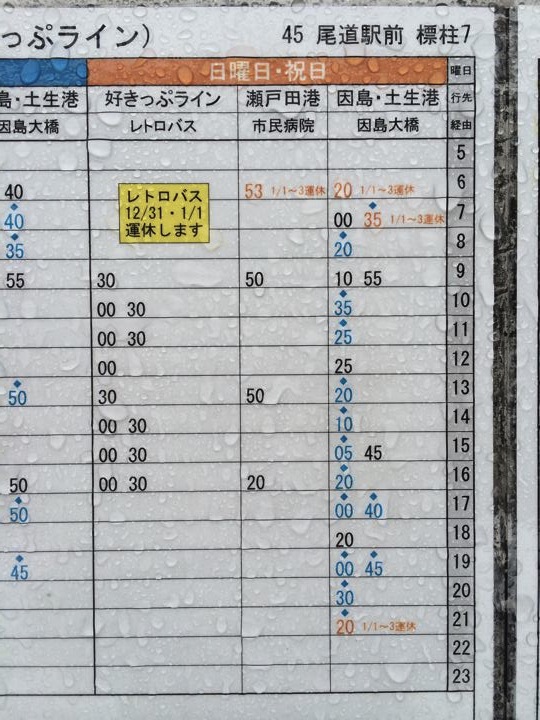 っぷライン） 45 尾道駅前 標柱7
日曜日・祝日 曜日
島・土生港 好きっぷライン 瀬戸田港 因島・土生港 行先
因島大橋 レトロバス 市民病院 因島大橋 経由
5
40 53 1/1～3運休 20 1/1～3運休 6
レトロバス
12/31・1/1
運休します
40 00 35 1/1～3運休 7
35 20 8
55 30 50 10 55 9
00 30 35 10
00 30 25 11
00 25 12
50 30 50 20 13
00 30 10 14
00 30 05 45 15
50 00 30 20 20 16
50 00 40 17
20 18
45 00 45 19
30 20
20 1/1～3運休 21
22
23